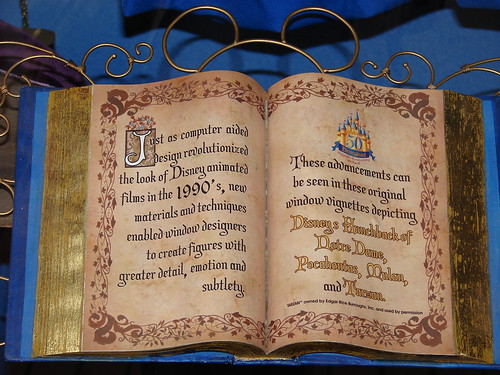 Just as computer aided
design revolutionized
the look of Disney animated
films in the 1990's, new
materials and techniques
enabled window designers
to create figures with
greater detail, emotion and
subtlety.
50
These advancements can
be seen in these original
window vignettes depicting
Disney's Hunchback of
Notre Dame,
Pocahontas, Mulan,
and Tarzan.
TARZAN™ owned by Edgar Rice Burroughs, Inc. and used by permission